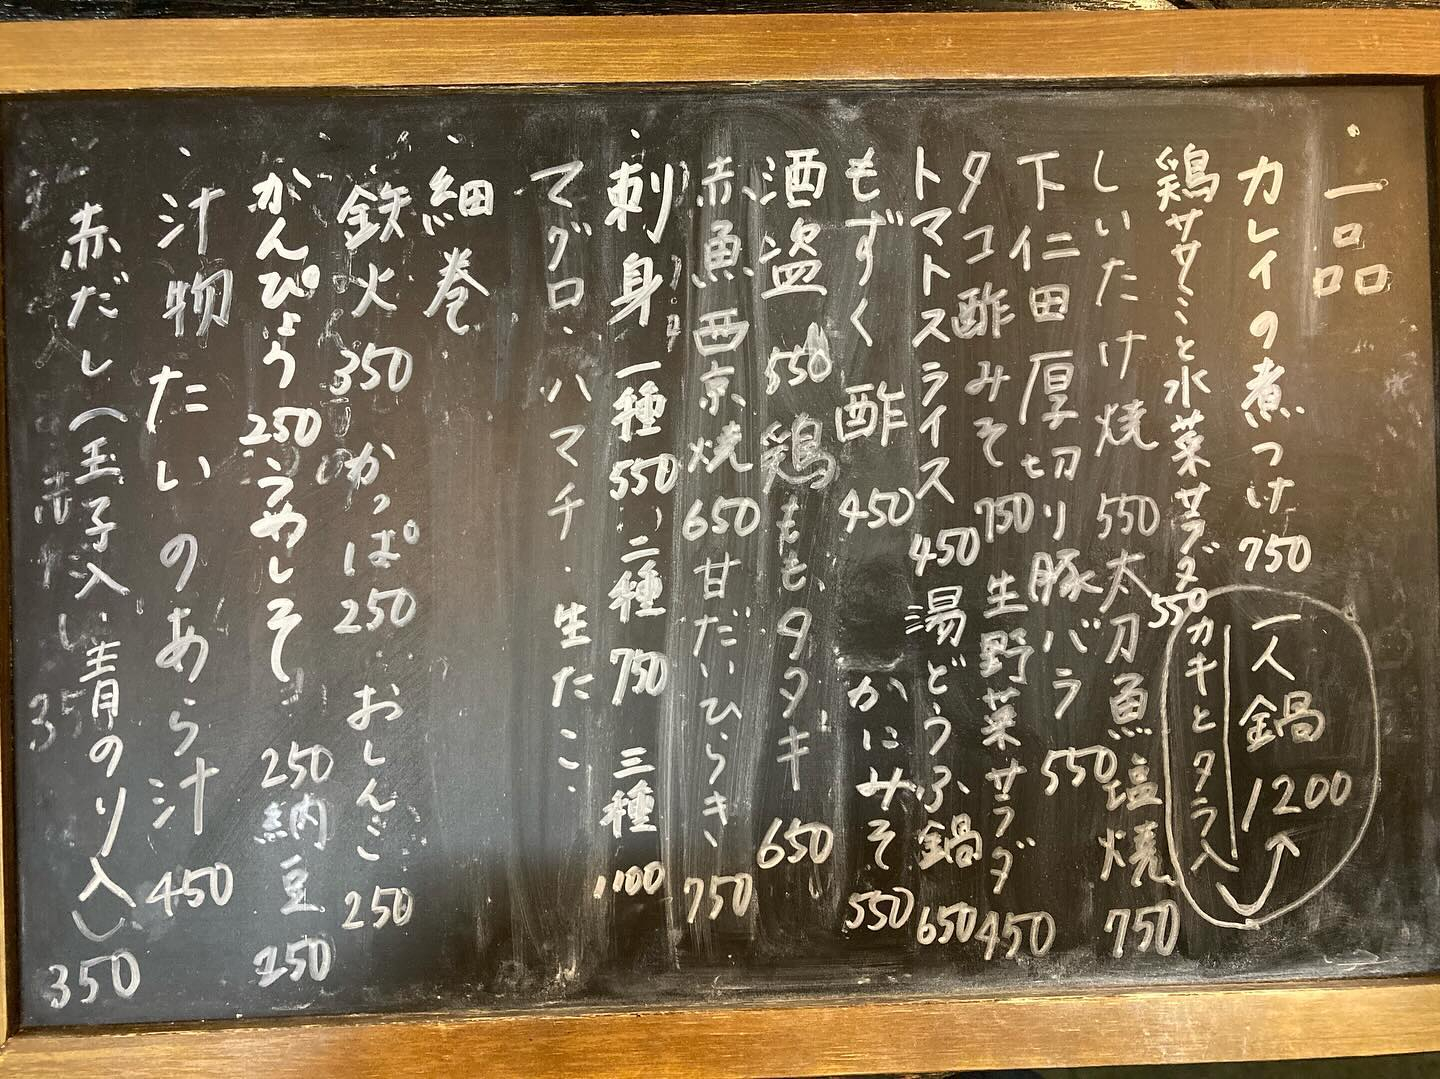 ・一品
カレイの煮つけ 750
一人鍋 1200
カキとタラ入
鶏ササミと水菜サラダ 550
しいたけ焼 550 太刀魚塩焼 750
下仁田厚切り豚バラ 550
タコ酢みそ 750 生野菜サラダ 450
トマトスライス 450 湯どうふ鍋 650
もずく酢 450 かにみそ 550
酒盗 550 鶏ももタタキ 650
赤魚西京焼 650 甘だいひらき 750
・刺身 一種 550、二種 750 三種 1100
マグロ・ハマチ・生たこ・
・細巻
鉄火 350 かっぱ 250 おしんこ 250
かんぴょう 250 うめしそ 250 納豆 250
・汁物 たいのあら汁 450
赤だし(玉子入・青のり入) 350